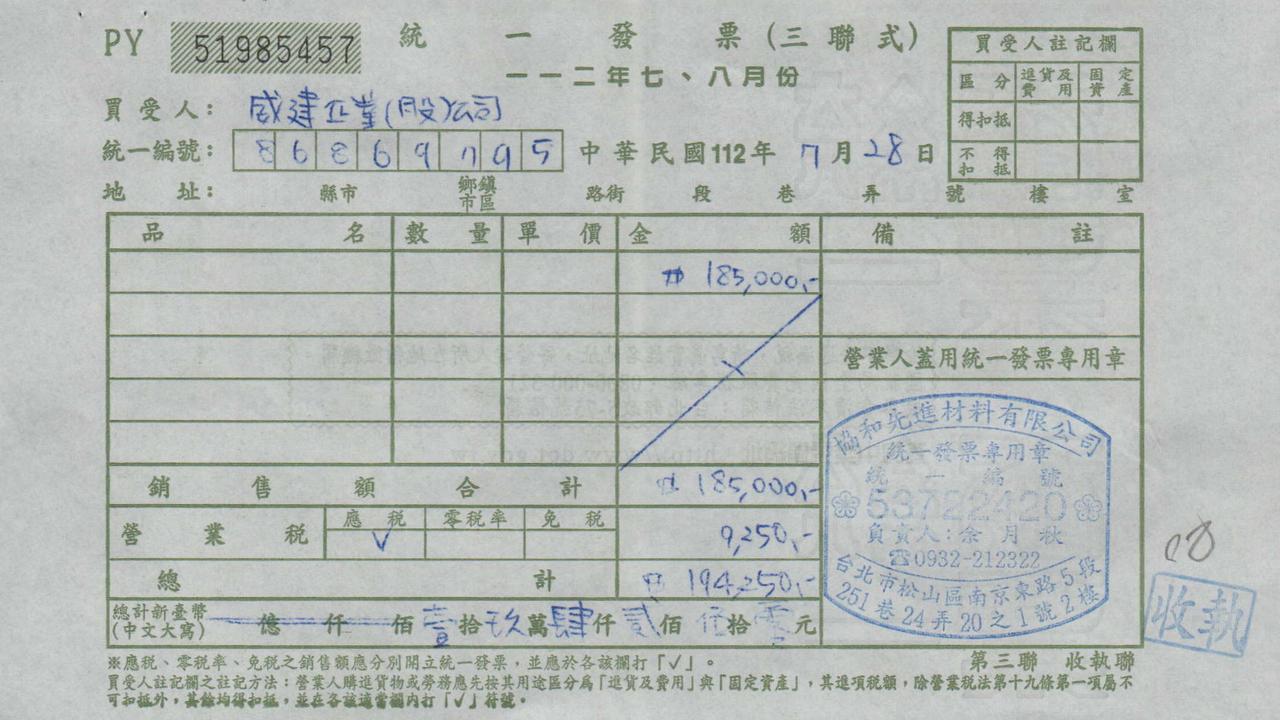 PY 51985457 統一發票(三聯式)
一一二年七、八月份
買受人註記欄
區分 進貨及費用 固定資產
得扣抵
不得扣抵
買受人: 威建企業(股)公司
統一編號: 86869795 中華民國112年7月28日
地址: 縣市 鄉鎮市區 路街 段 巷 弄 號 樓 室
品名 數量 單價 金額 備註
185,000,-
營業人蓋用統一發票專用章
銷售額合計 185,000,-
營業稅 應稅 零稅率 免稅
✓ 9,250,-
總計 194,250,-
總計新臺幣(中文大寫) 億 仟 佰 壹拾玖萬肆仟貳佰伍拾零元
協和先進材料有限公司
統一發票專用章
統一編號
53722420
負責人:余月秋
☎0932-212322
台北市松山區南京東路5段
251巷24弄20之1號2樓
收執
※應稅、零稅率、免稅之銷售額應分別開立統一發票,並應於各該欄打「✓」。
第三聯 收執聯
買受人註記欄之註記方法:營業人購進貨物或勞務應先按其用途區分為「進貨及費用」與「固定資產」,其進項稅額,除營業稅法第十九條第一項屬不
可扣抵外,其餘均得扣抵,並在各該適當欄內打「✓」符號。